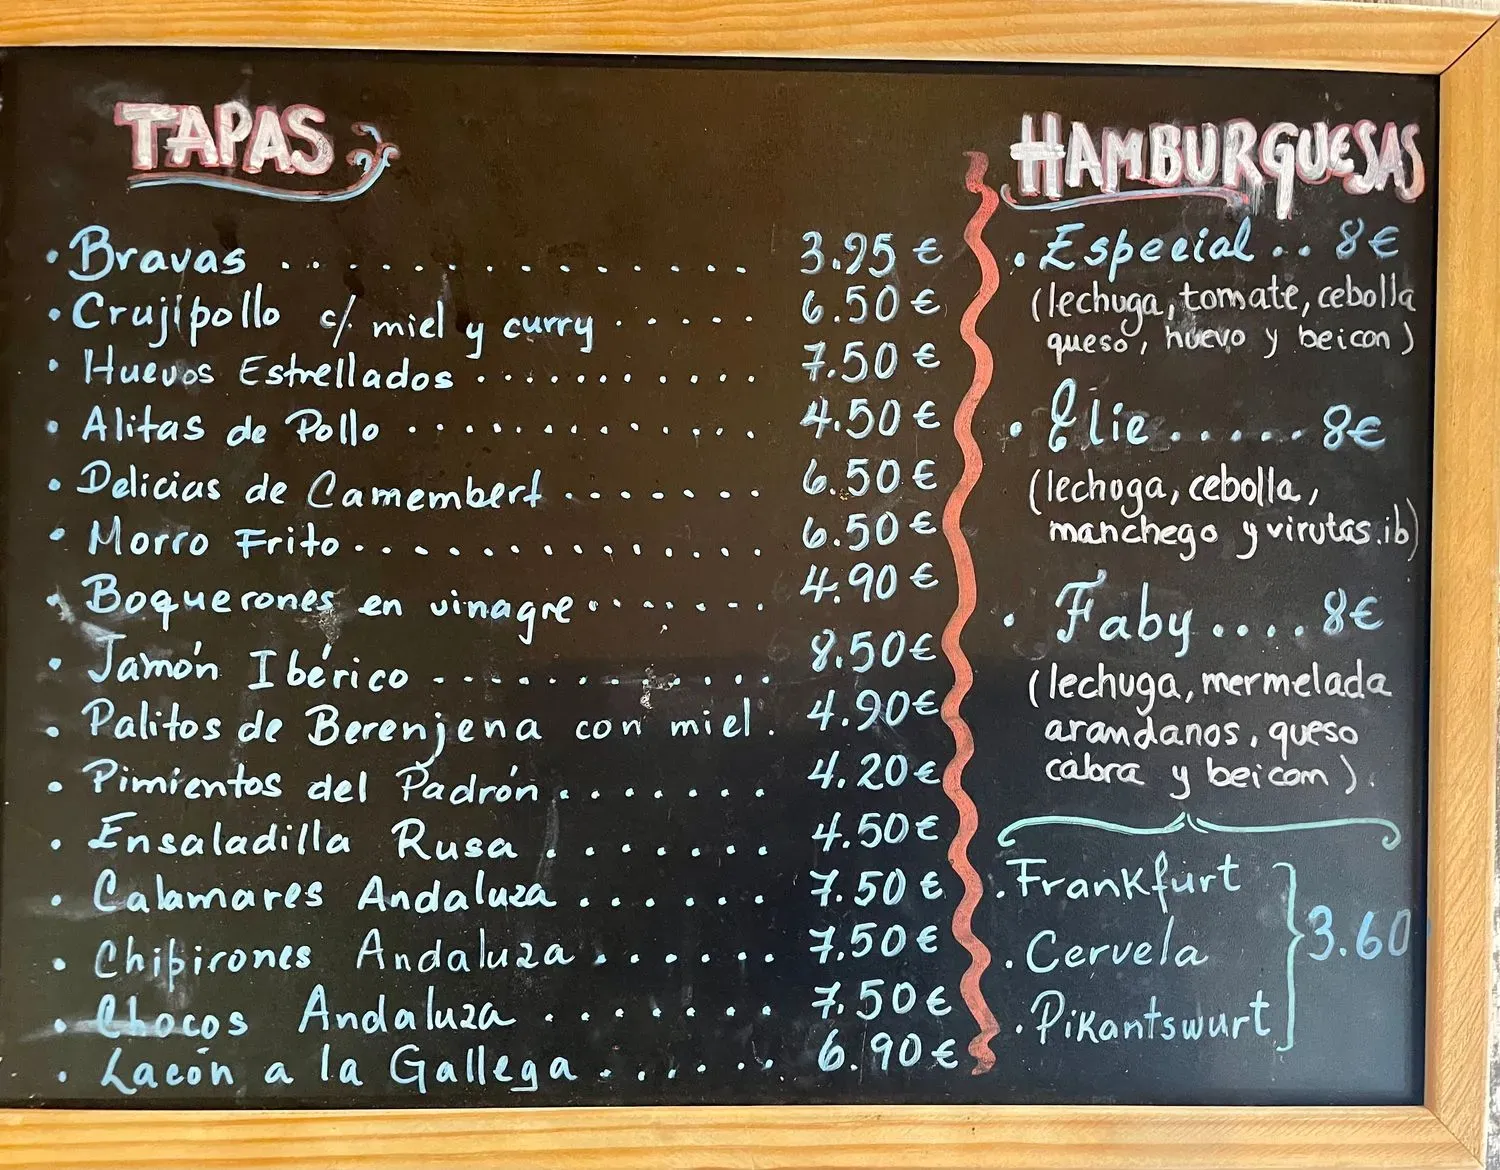 TAPAS
· Bravas .............. 3.95 €
· Crujipollo c/. miel y curry ..... 6.50 €
· Huevos Estrellados ........... 7.50 €
· Alitas de Pollo ............. 4.50 €
· Delicias de Camembert ....... 6.50 €
· Morro Frito .............. 6.50 €
· Boquerones en vinagre ....... 4.90 €
· Jamón Ibérico ............ 8.50€
· Palitos de Berenjena con miel . 4.90€
· Pimientos del Padrón ....... 4.20€
· Ensaladilla Rusa ....... 4.50€
· Calamares Andaluza ...... 7.50 €
· Chipirones Andaluza ...... 7.50€
· Chocos Andaluza ........ 7.50€
· Lacón a la Gallega ...... 6.90€
HAMBURGUESAS
· Especial .. 8€
(lechuga, tomate, cebolla
queso, huevo y beicon)
· Elie ..... 8€
(lechoga, cebolla,
manchego y virutas.ib)
· Faby .... 8€
(lechuga, mermelada
arandanos, queso
cabra y beicom).
· Frankfurt
· Cervela 3.60
· Pikantswurt